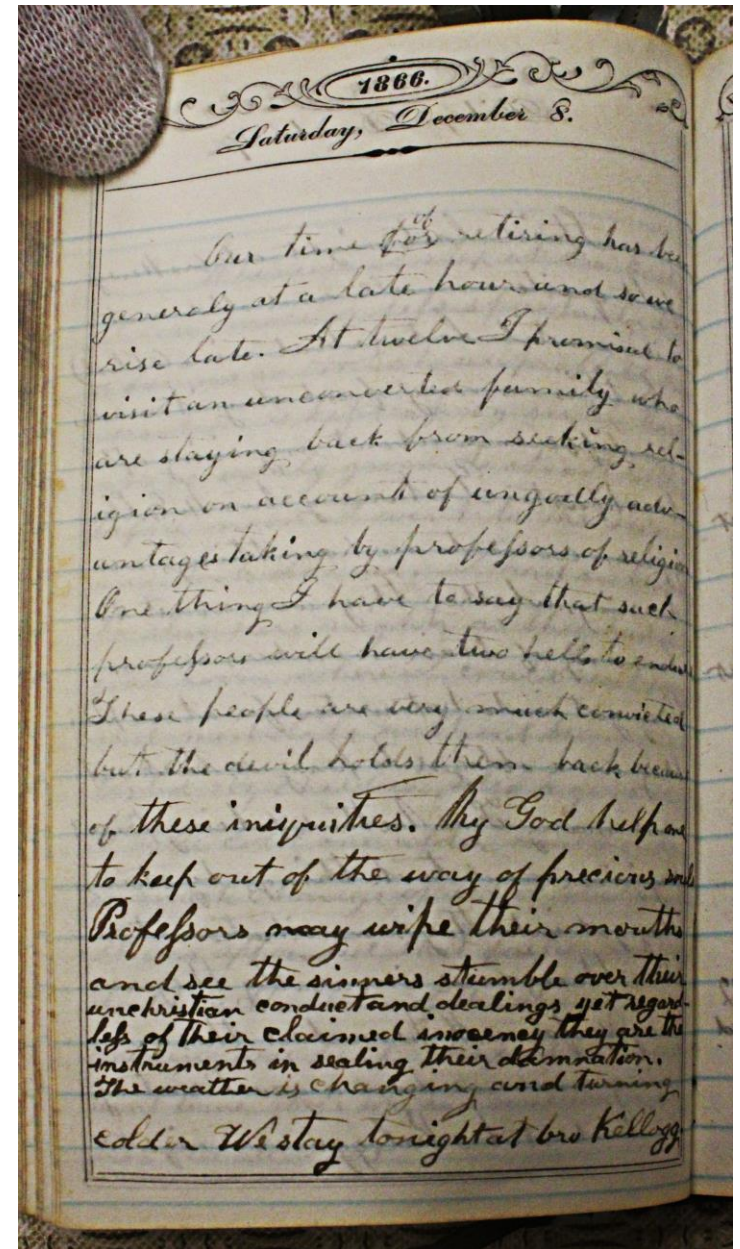 1866.
Saturday, December 8.
of
Our time for retiring has be
generaly at a late hour and so we
rise late. At twelve I promised to
visit an unconverted family who
are staying back from seeking rel-
igion on account of ungodly adv-
antages taking by professors of religion
One thing I have to say that such
professors will have two hells to endure
These people are very much convicted
but the devil holds them back because
of these iniquities. My God help me
to keep out of the way of precious souls
Professors may wipe their mouths
and see the sinners stumble over their
unchristian conduct and dealings yet regard-
less of their claimed inocency they are the
instruments in sealing their damnation.
The weather is changing and turning
colder We stay tonight at bro Kellogg